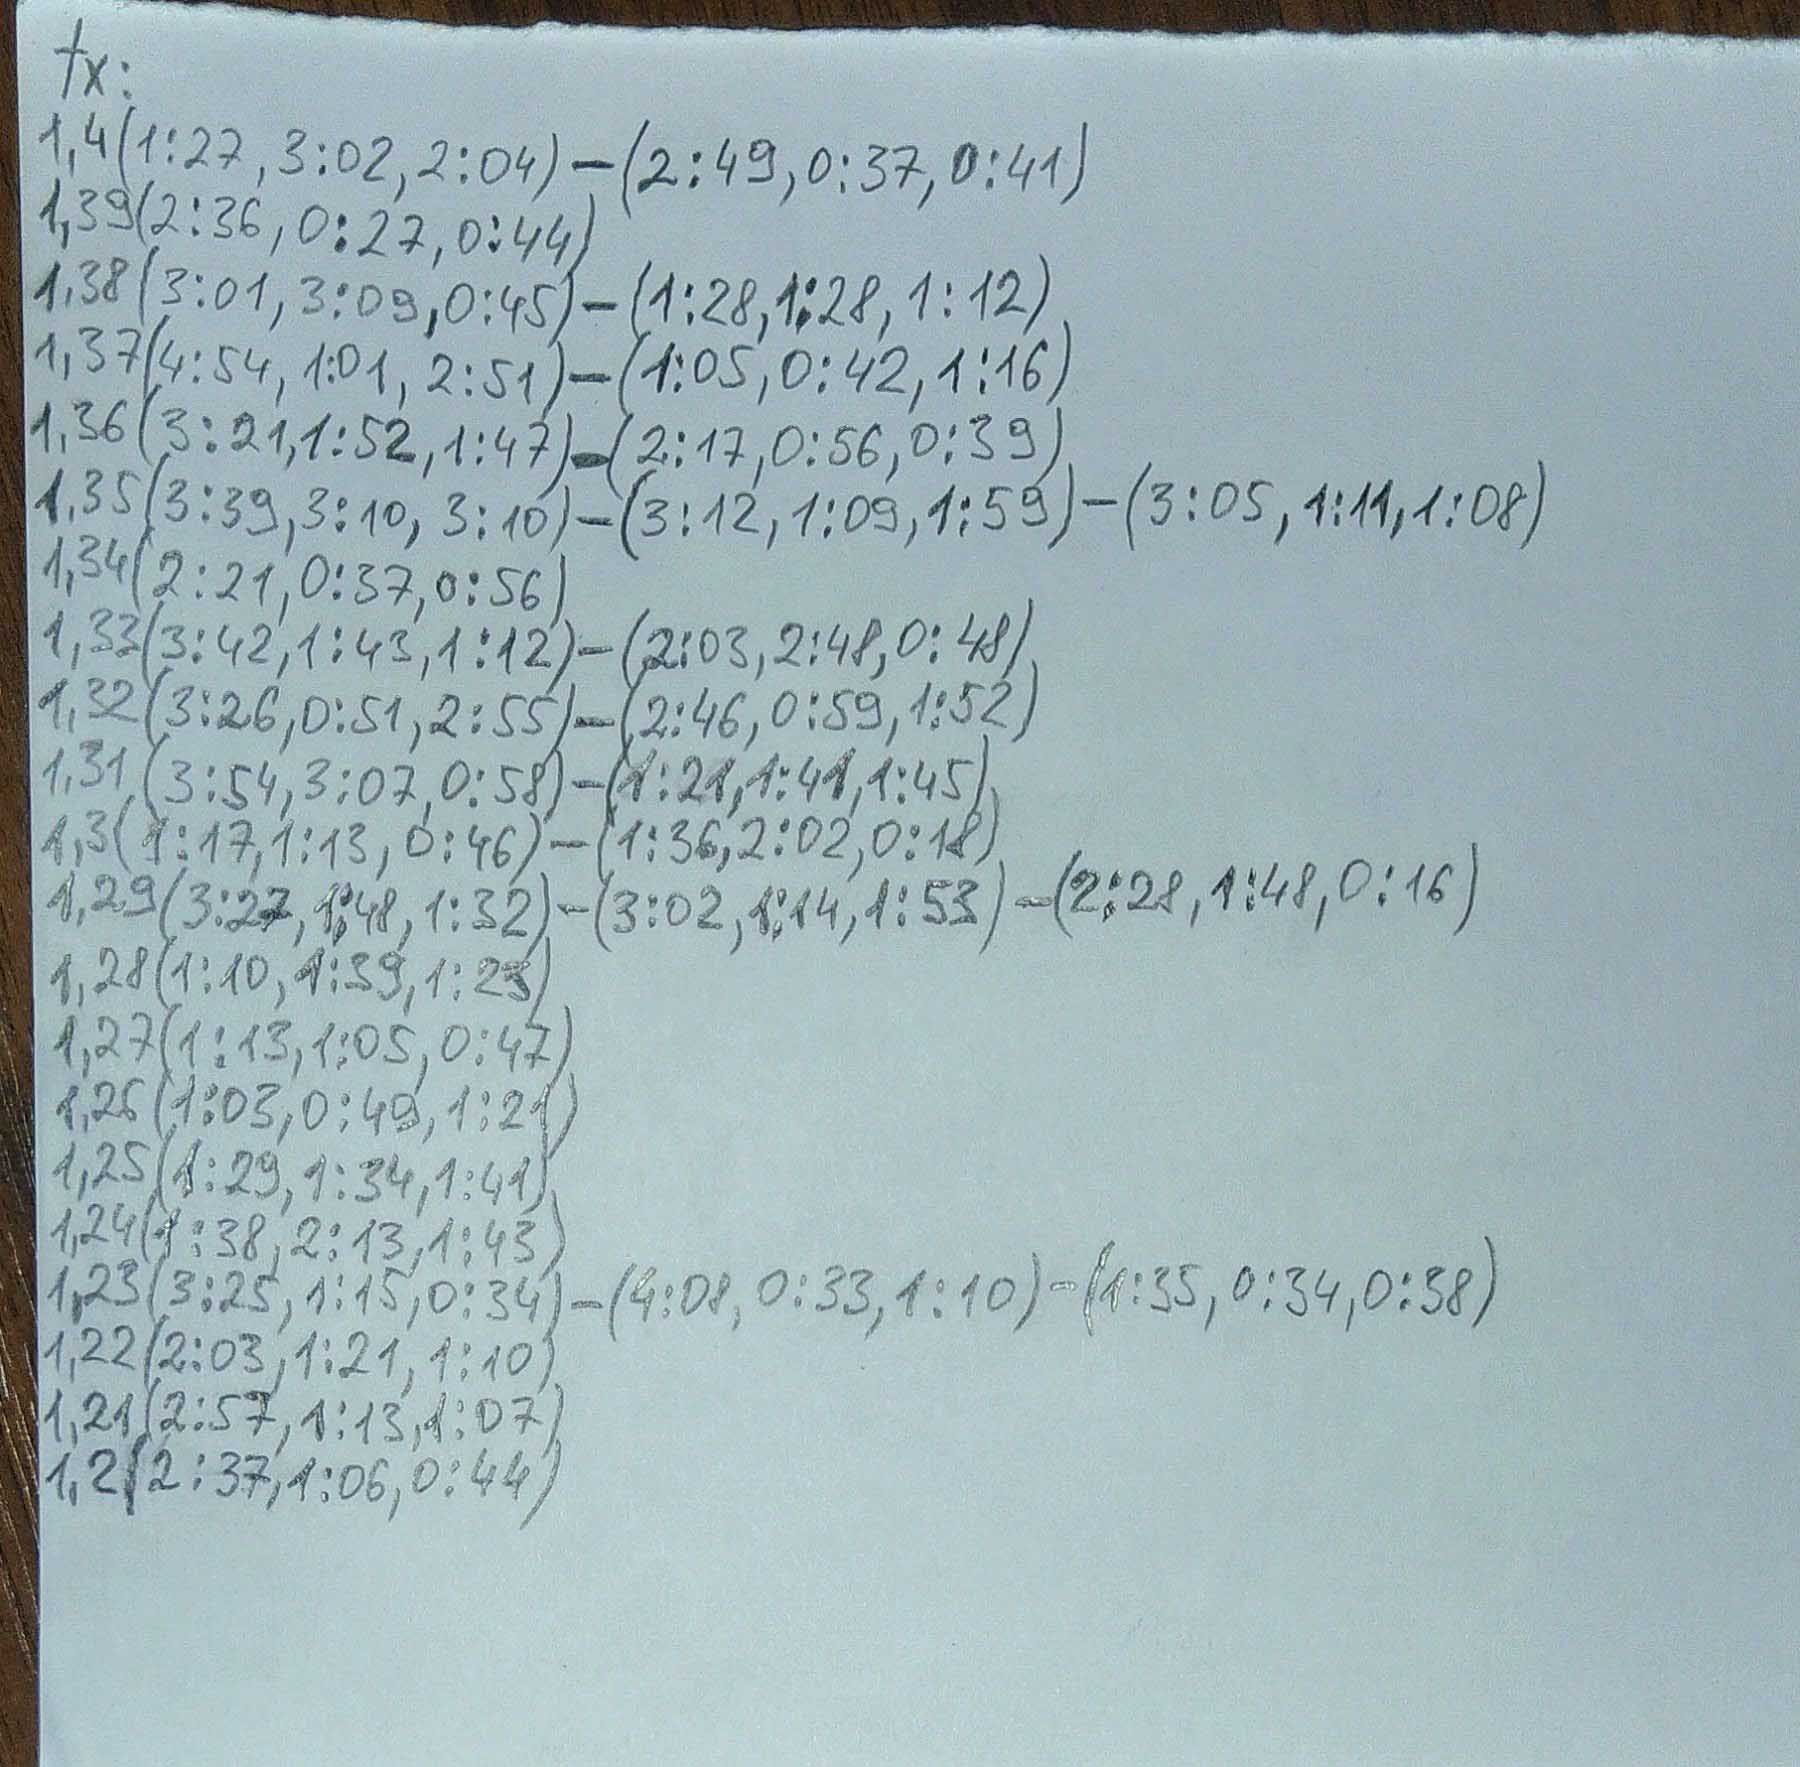 tx:
1,4(1:27, 3:02, 2:04)-(2:49, 0:37, 0:41)
1,39(2:36, 0:27, 0:44)
1,38(3:01, 3:09, 0:45)-(1:28, 1:28, 1:12)
1,37(4:54, 1:01, 2:51)-(1:05, 0:42, 1:16)
1,36(3:21, 1:52, 1:47)-(2:17, 0:56, 0:39)
1,35(3:39, 3:10, 3:10)-(3:12, 1:09, 1:59)-(3:05, 1:11, 1:08)
1,34(2:21, 0:37, 0:56)
1,33(3:42, 1:43, 1:12)-(2:03, 2:48, 0:48)
1,32(3:26, 0:51, 2:55)-(2:46, 0:59, 1:52)
1,31(3:54, 3:07, 0:58)-(1:21, 1:41, 1:45)
1,3(1:17, 1:13, 0:46)-(1:36, 2:02, 0:18)
1,29(3:27, 1:48, 1:32)-(3:02, 1:14, 1:53)-(2:28, 1:48, 0:16)
1,28(1:10, 1:39, 1:23)
1,27(1:13, 1:05, 0:47)
1,26(1:03, 0:49, 1:21)
1,25(1:29, 1:34, 1:41)
1,24(1:38, 2:13, 1:43)
1,23(3:25, 1:15, 0:34)-(4:08, 0:33, 1:10)-(1:35, 0:34, 0:38)
1,22(2:03, 1:21, 1:10)
1,21(2:57, 1:13, 1:07)
1,2(2:37, 1:06, 0:44)